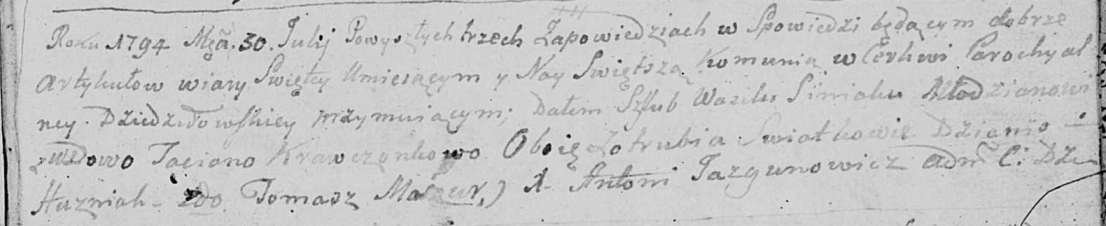 Roku 1794 Mca. 30. Julij Powyszłych trzech Zapowiedziach w Spowiedzi będącym dobrze
Artykułow wiary Swiętey Umieiącym y Nay Swiętszą Komunią w Cerkwi Parochyal
ney. Dziedziłowskiey przymuiącym; Dałem Szlub Wasilu Simiaku Młodzianowi
z wdowo Tacianą Krawczonkowo Oboię Zotrubia Swiatkowie Dzianis -
Huzniak - 2do Tomasz Mazur,) X. Antoni Jazgunowicz adm C: Dzi